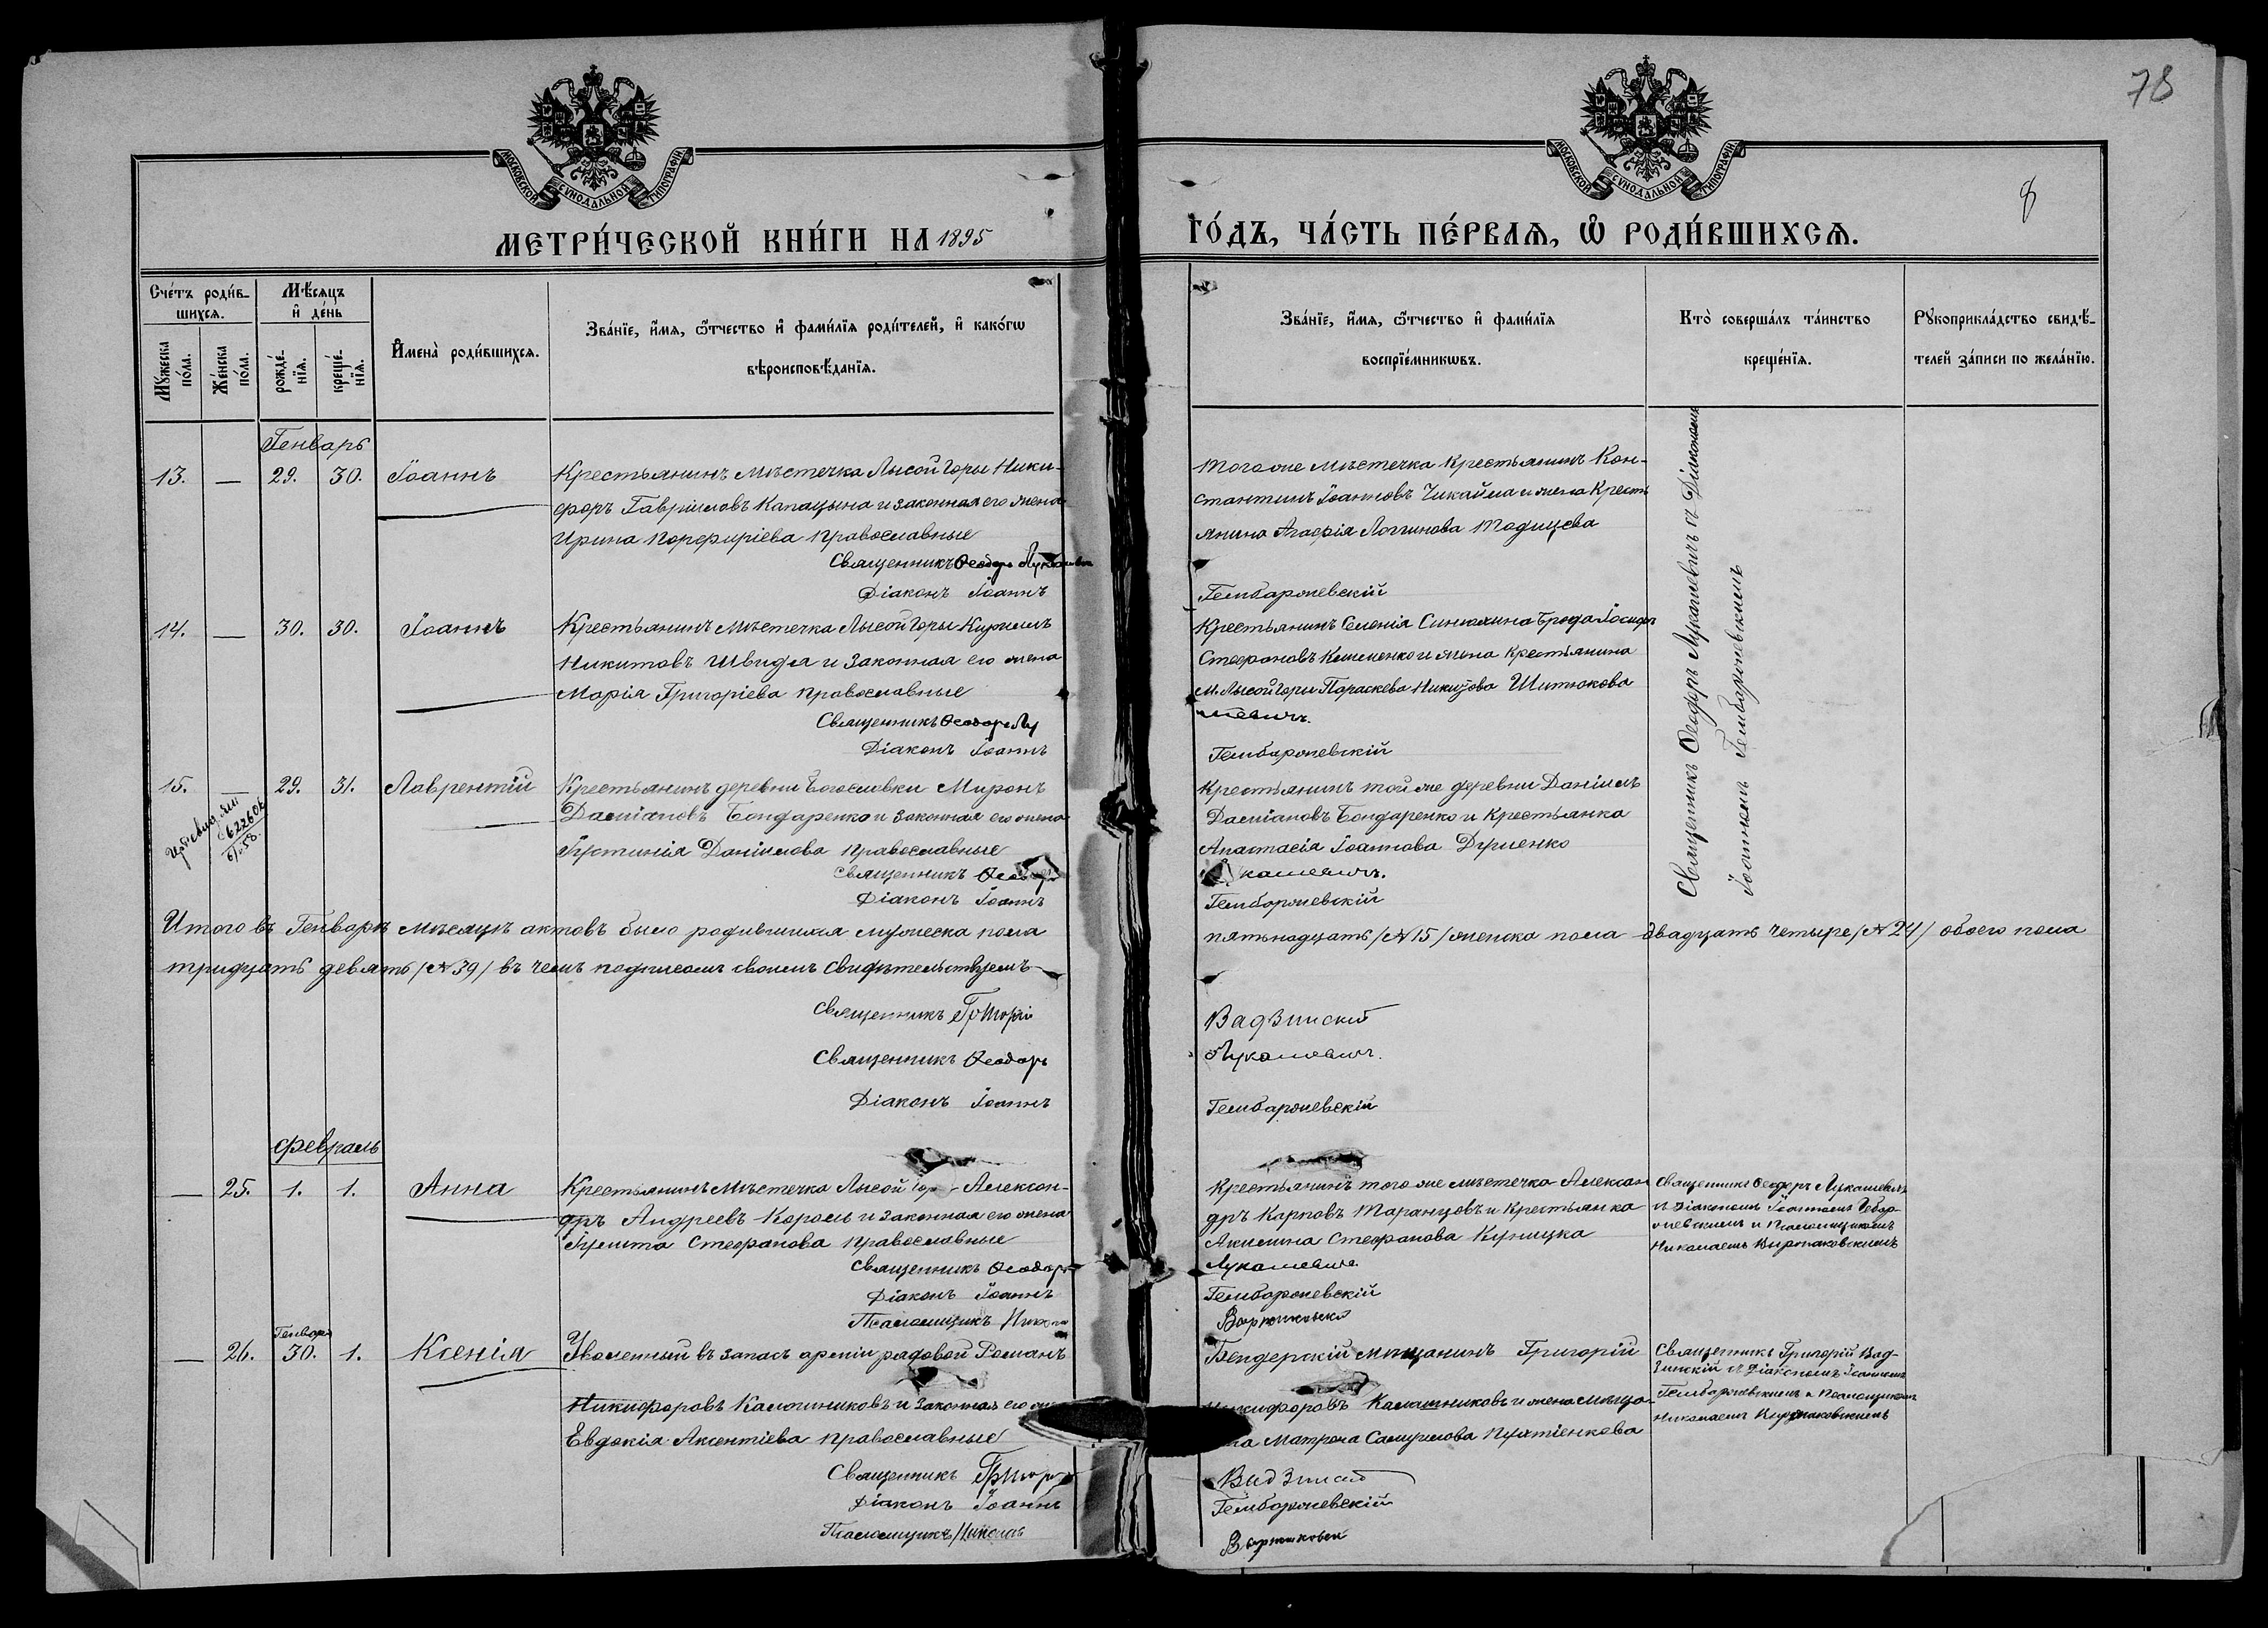 78
8
МОСКОВСКОЙ СѴНОДАЛЬНОЙ ТИПОГРАФІИ
МОСКОВСКОЙ СѴНОДАЛЬНОЙ ТИПОГРАФІИ
МЕТРИ́ЧЕСКОЙ КНИ́ГИ НА 1895 ГО́ДЪ, ЧА́СТЬ ПЕ́РВАЯ, Ѡ РОДИ́ВШИХСЯ.
Сче́тъ роди́в-
шихся.
Мѣ́сяцъ
и де́нь
Мꙋ́жеска по́ла.
Же́нска по́ла.
рожде́-
нїя.
креще́-
нїя.
Имена̀ роди́вшихся.
Зва́нїе, и́мя, ѻ́тчество и фами́лїя роди́телей, и како́гѡ
вѣроисповѣ́данїя.
Зва́нїе, и́мя, ѻ́тчество и фами́лїя
воспрїе́мникѡвъ.
Кто̀ соверша́лъ та́инство
креще́нїя.
Рꙋкоприкла́дство свидѣ́-
телей за́писи по жела́нїю.
Генварь
13. — 29. 30. Іоаннъ
Крестьянинъ мѣстечка Лысой Горы Ники-
форъ Гавріиловъ Капацына и законная его жена
Ирина Порфиріева православные
Священникъ Ѳеодоръ Лукашевич
Діаконъ Іоаннъ
Тогоже мѣстечка крестьянинъ Кон-
стантинъ Іоанновъ Чикайла и жена кресть
янина Агафія Логгинова
Гембаржевскій
Священникъ Ѳеодоръ Лукашевичъ съ Діакономъ
Іоанномъ Гембаржевскимъ
14. — 30. 30. Іоаннъ
Крестьянинъ мѣстечка Лысой Горы Кирилъ
Никитовъ Швидя и законная его жена
Марія Григоріева православные
Священникъ Ѳеодоръ Лу
Діаконъ Іоаннъ
Крестьянинъ Селенія Синюхина Брода Іосифъ
Стефановъ Клименко и жена крестьянина
М. Лысой Горы Параскева Никитова Шитюкова
Гембаржевскій
15. — 29. 31. Лаврентій
622606
Крестьянинъ деревни Богословки Миронъ
Даміановъ Бондаренко и законная его жена
Іустинія Даніилова православные
Священникъ Ѳеодоръ
Діаконъ Іоаннъ
Крестьянинъ той же деревни Даніилъ
Даміановъ Бондаренко и крестьянка
Анастасія Іоаннова Дуценко
кашевичъ.
Гембаржевскій
Итого въ Генварѣ мѣсяцѣ актовъ было родившихся мужеска пола пятьнадцать /№ 15/ женска пола двадцать четыре /№ 24/ обоего пола
тридцать девять /№ 39/ въ чемъ подписомъ своимъ свидѣтельствуемъ
Священникъ Григорій Вадзинскій
Священникъ Ѳеодоръ Лукашевичъ.
Діаконъ Іоаннъ Гембаржевскій
Февраль
— 25. 1. 1. Анна
Крестьянинъ Мѣстечка Лысой Гор Алексан-
дръ Андреевъ Король и законная его жена
Стефанова православные
Священникъ Ѳеодоръ
Діаконъ Іоаннъ
Псаломщикъ Никола
Крестьянинъ того же мѣстечка Алексан
дръ Карповъ Таранцовъ и крестьянка
Акилина Стефанова Куницка
Лукашевичъ
Гембаржевскій
Священникъ Ѳеодоръ Лукашевичъ
съ Діакономъ Іоанномъ Гебар-
жевскимъ и Псаломщикомъ
Николаемъ
Генваря
— 26. 30. 1. Ксенія
Уволенный въ запасъ арміи рядовой Романъ
Никифоровъ Калашниковъ и законная его же
Евдокія Аксентіева православные
Священникъ Григор
Діаконъ Іоаннъ
Псаломщикъ Никола
Бендерскій мѣщанинъ Григорій
Никифоровъ Калашниковъ и жена мѣща-
на Матрона Самуилова
Вадзинскій
Гембаржевскій
Священникъ Григорій Вад-
зинскій съ Діакономъ Іоанномъ
Гембаржевскимъ и Псаломщикомъ
Николаемъ